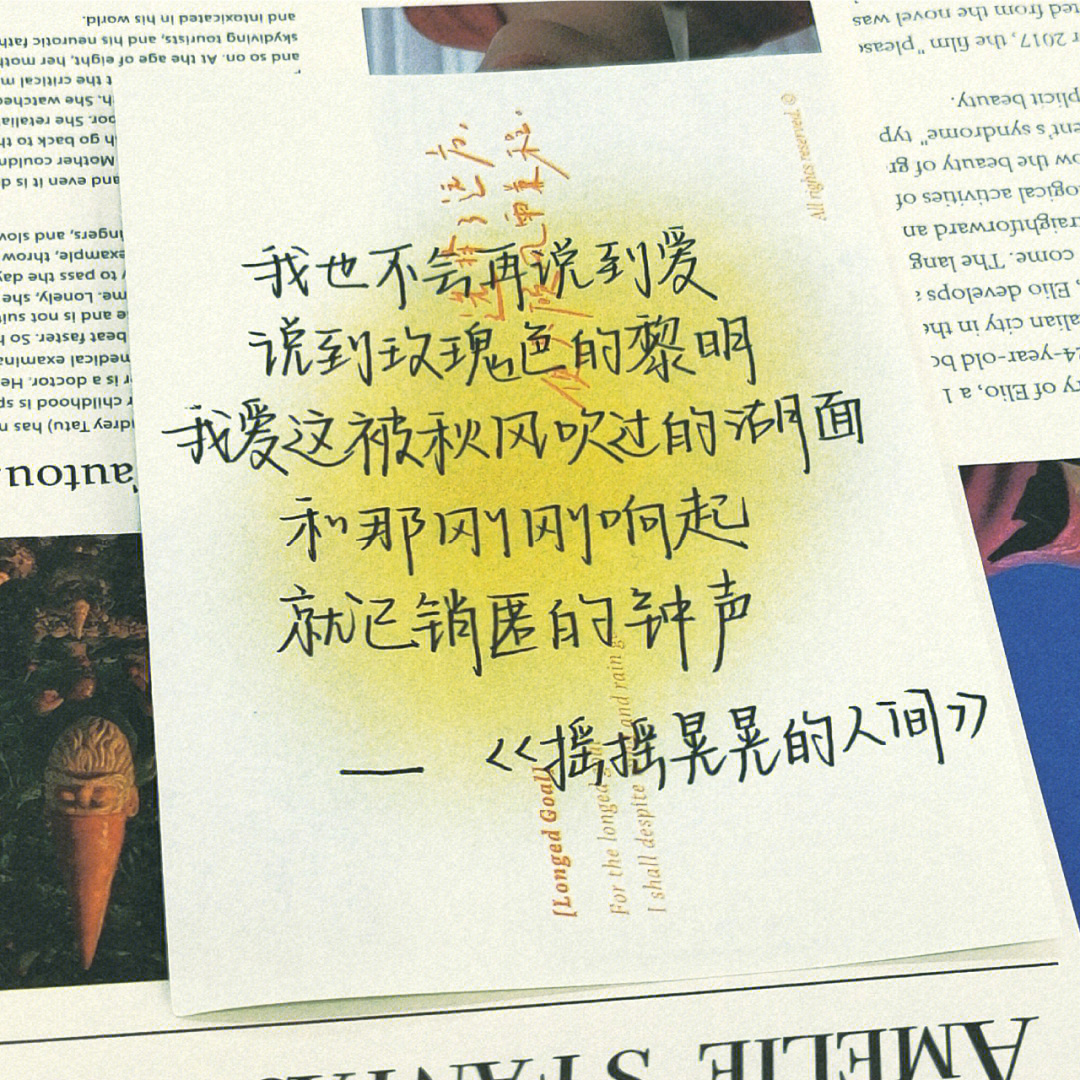 我也不会再说到爱
说到玫瑰色的黎明
我爱这被秋风吹过的湖面
和那刚刚响起
就已销匿的钟声
— 《摇摇晃晃的人间》
选择了远方,
便只顾风雨兼程.
All rights reserved. ©
[Longed Goal]
For the longed
I shall despite and rain
and intoxicated in his world.
skydiving tourists, and his neurotic fath
and so on. At the age of eight, her moth
t the critical m
h. She watche
oor. She retalia
h go back to th
Mother couldn
and even it is d
ngers, and slov
example, throw
to pass the day
me. Lonely, she
e and is not suit
beat faster. So h
medical examina
r is a doctor. He
r childhood is sp
drey Tatu) has n
autou
ted from the novel was
r 2017, the film "please
plicit beauty.
ent's syndrome" typ
ow the beauty of gr
ological activities of
raightforward an
come. The lang
, Elio develops
alian city in the
24-year-old bo
ry of Elio, a 1
AMELIE